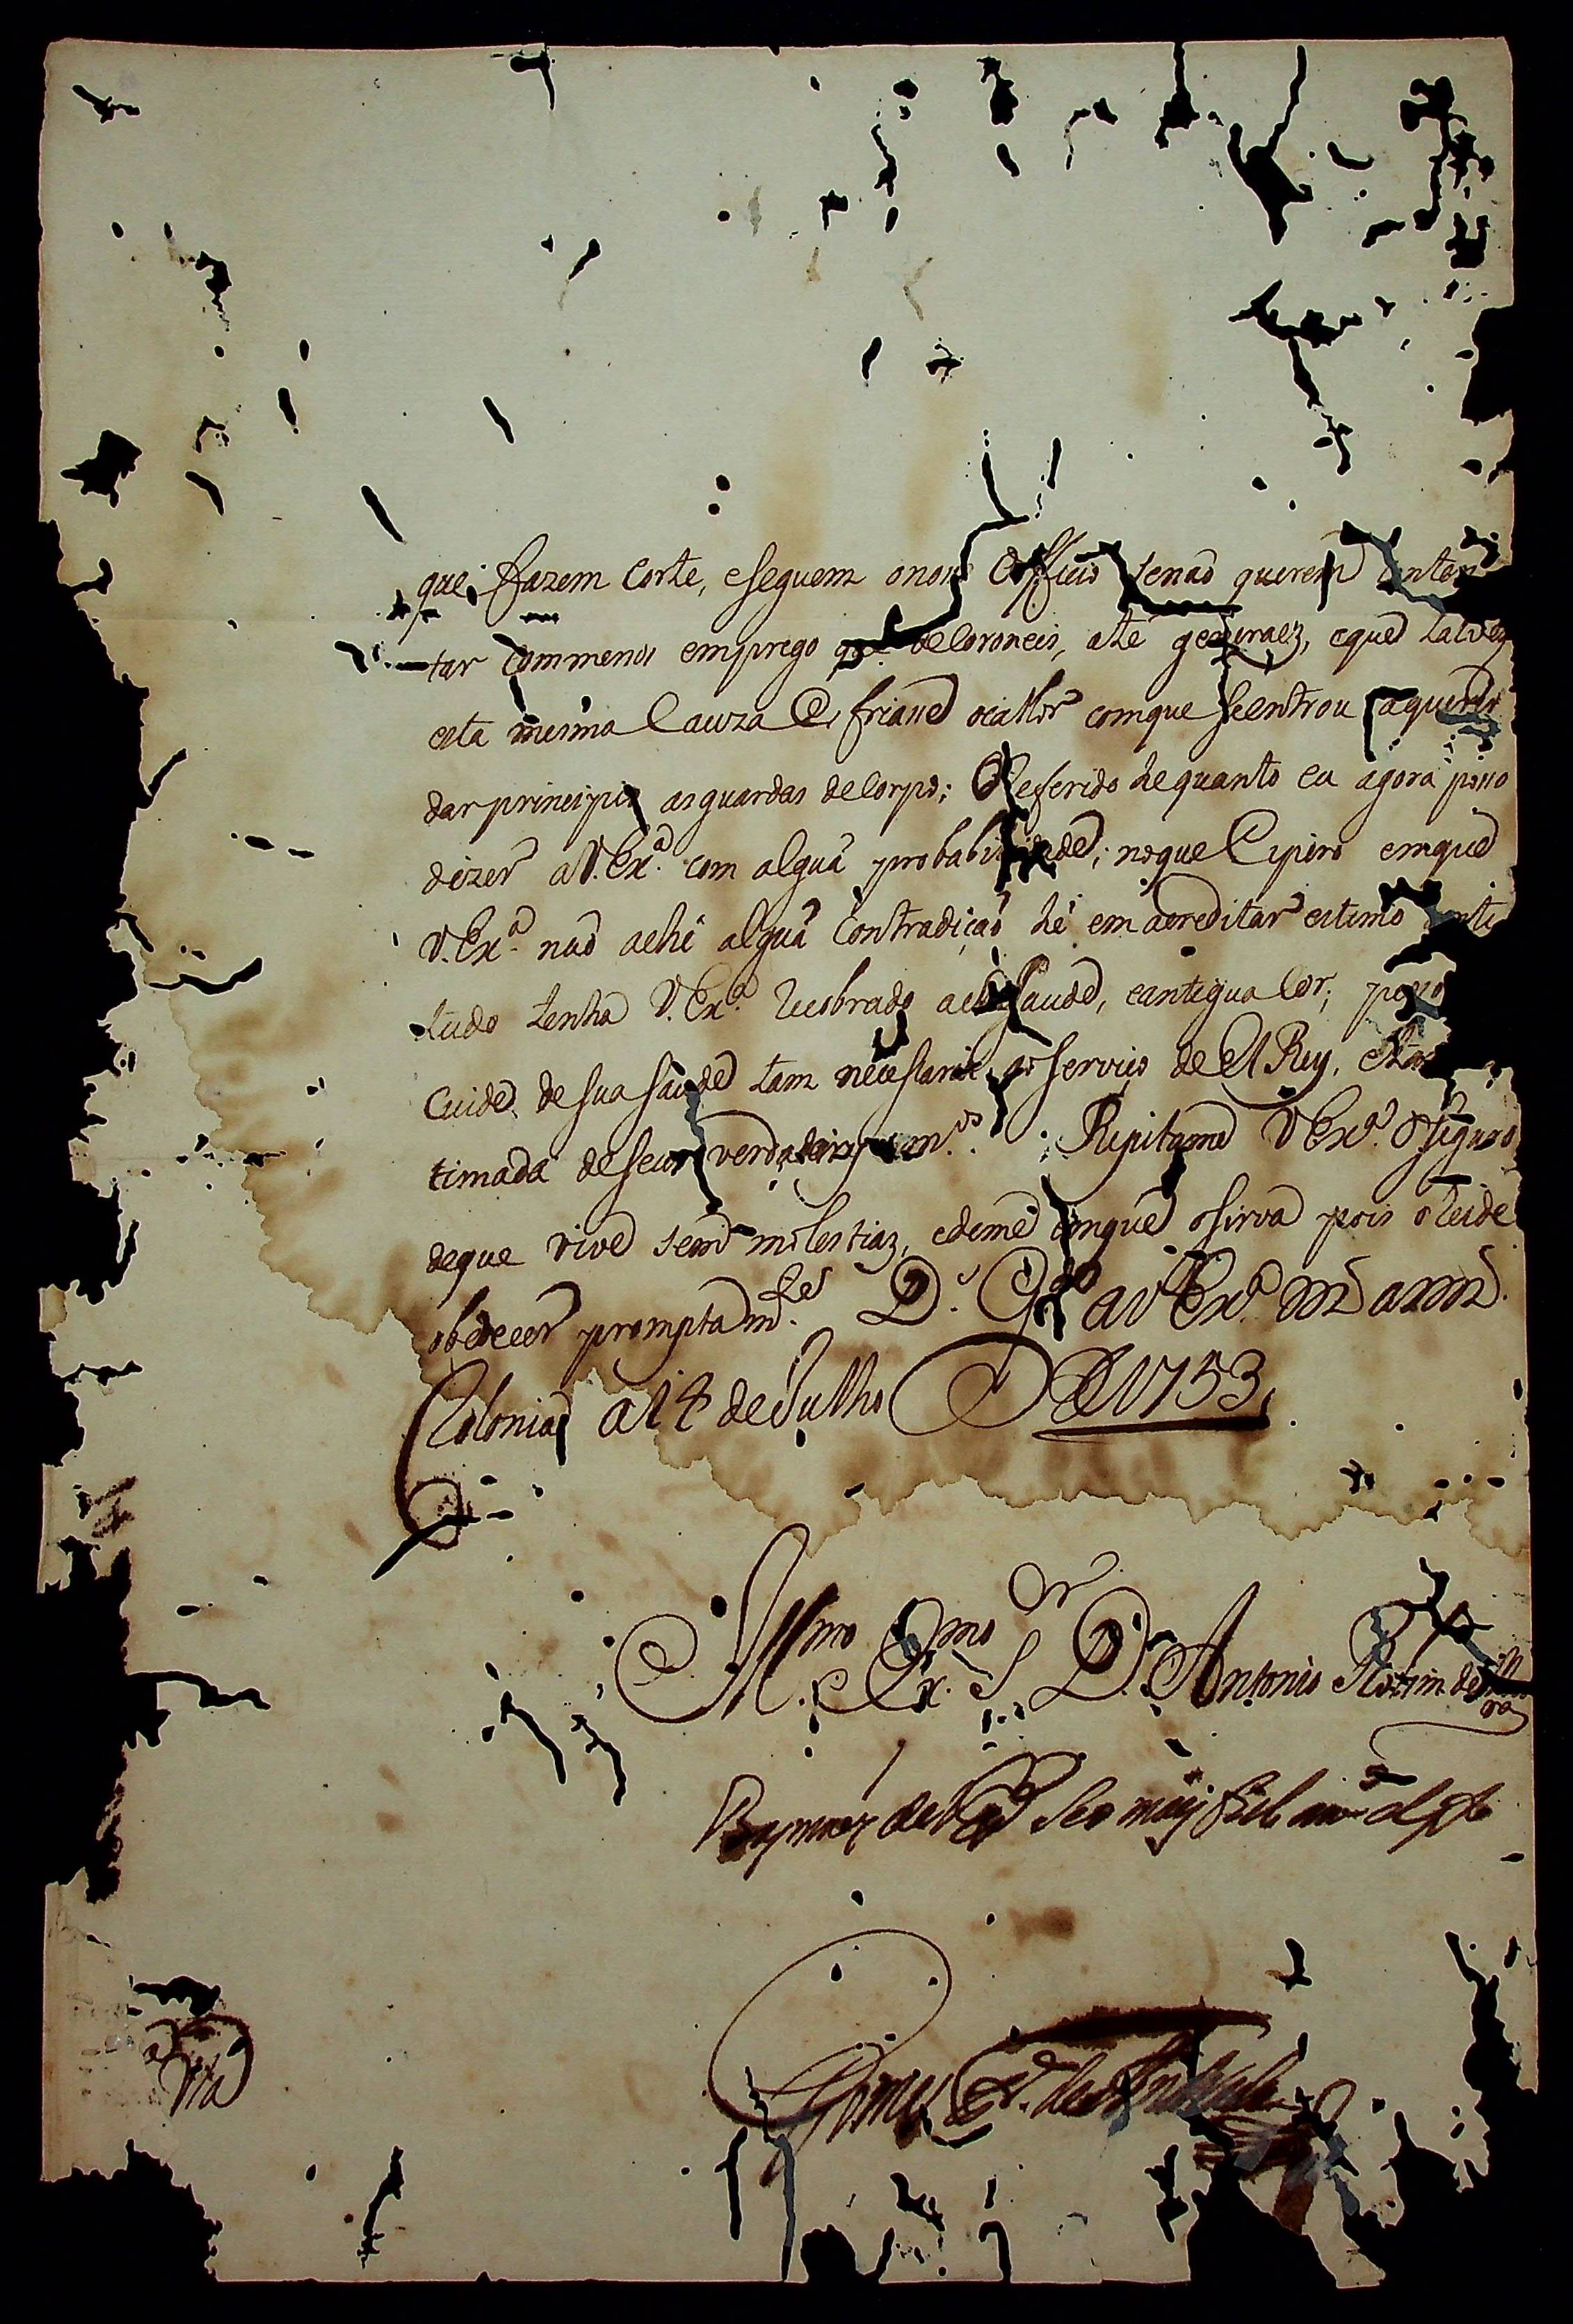 que fazem Corte, eseguem onovo Officio senaõ querem inten
tar commenos emprego q̃ deCoroneis, até generaes, eque talvez
esta mesma Cauza Esfriase ocallor comque seentrou aquerer
dar principio asguardas deCorpo; OReferido hequanto eu agora poso
dizer aV.Exª. com alguã probabilidade; noque Espero emque
V.Exª. naõ ache alguã Contradiçaõ he em acreditar estimo
tudo tenha V.Exª. Recobrado asua Saude, eantigua Cor;
Cuide desua Saude tam necessaria ao Serviço de El Rey,
timada deseus verdadeiros am.ᵒˢ. Repitame VExª. Oseguro
deque vive sem molestias, edeme emque osirva pois oheide
obedecer promptam.ᵗᵉ D.ˢ G.ᵈᵉ aVExª. m.ˢ an.ˢ
Colonia a 14 deJulho De 1753,
Ill.ᵐᵒ e Ex.ᵐᵒ S.ᵒʳ D. Antonio Rolim de Mou
ra
seo mais fiel
Gomes Fr. de Andrada